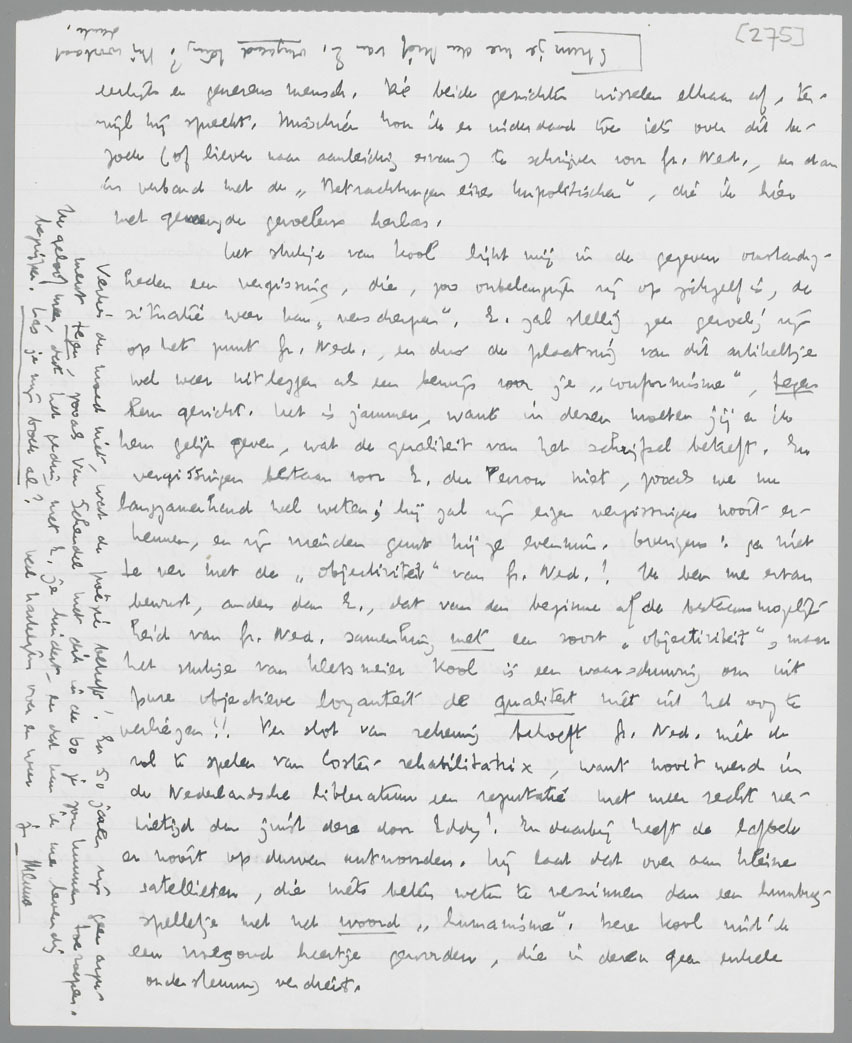 [275]
Stuur je me den brief van E. ongaand terug? Bij voorbaat
dank,
eerlijk en genereus mensch. Die beide gezichten wisselen elkaar af, ter-
wijl hij spreekt. Misschien kom ik er inderdaad toe iets over dit be-
zoek (of liever naar aanleiding ervan) te schrijven voor Gr. Ned., en dan
in verband met de „Betrachtungen eines Unpolitischen", die ik hier
met gemengde gevoelens herlas.
Het stukje van Kool lijkt mij in de gegeven omstandig-
heden een vergissing, die, zoo onbelangrijk zij op zichzelf is, de
situatie weer kan „verscherpen". E. zal stellig zeer gevoelig zijn
op het punt Gr. Ned., en dus de plaatsing van dit artikeltje
wel weer uitleggen als een bewijs voor je „conformisme", tegen
hem gericht. Het is jammer, want in dezen moeten jij en ik
hem gelijk geven, wat de qualiteit van het schrijfsel betreft. En
vergissingen bestaan voor E. du Perron niet, zooals we nu
langzamerhand wel weten; hij zal zijn eigen vergissingen nooit er-
kennen, en zijn vrienden gunt hij ze evenmin. Overigens: ga niet
te ver met de „objectiviteit" van Gr. Ned.! Ik ben me ervan
bewust, anders dan E., dat van den beginne af de bestaansmogelijk-
heid van Gr. Ned. samenhing met een soort „objectiviteit", maar
het stukje van kletsmeier Kool is een waarschuwing om uit
pure objectieve loyauteit de qualiteit niet uit het oog te
verliezen!! Per slot van rekening behoeft Gr. Ned. niet de
rol te spelen van Coster-rehabilitatrix, want nooit werd in
de Nederlandsche litteratuur een reputatie met meer recht ver-
nietigd dan juist deze door Eddy! En daarbij heeft de lafbek
er nooit op durven antwoorden. Hij laat dat over aan kleine
satellieten, die niets beters weten te verzinnen dan een humbug-
spelletje met het woord „humanisme". Deze Kool vind ik
een heertje geworden, die in dezen geen enkele
ondersteuning verdient.
Verlies den moed niet, wat de poëzie betreft! En 50 jaren zijn geen argu-
ment tegen, zooals Van Schendel met dik in de 60 je zou kunnen toeroepen.
Ik geloof meer, dat het geding met E. je hindert - en dat kan ik me levendig
begrijpen. Las je mijn boek al? Veel hartelijks over en weer je Menno